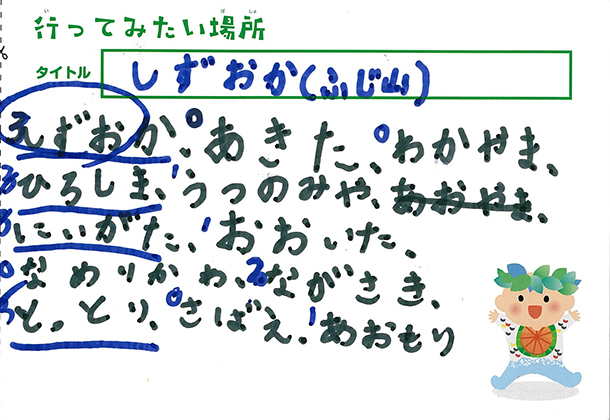 行ってみたい場所
タイトル しずおか(ふじ山)
しずおか、0あきた、0わかやま、
3ひろしま、1うつのみや、あおやま、
にいがた、1おおいた、
0なめりかわ、2ながさき、
と。とり、0さばえ、1あおもり